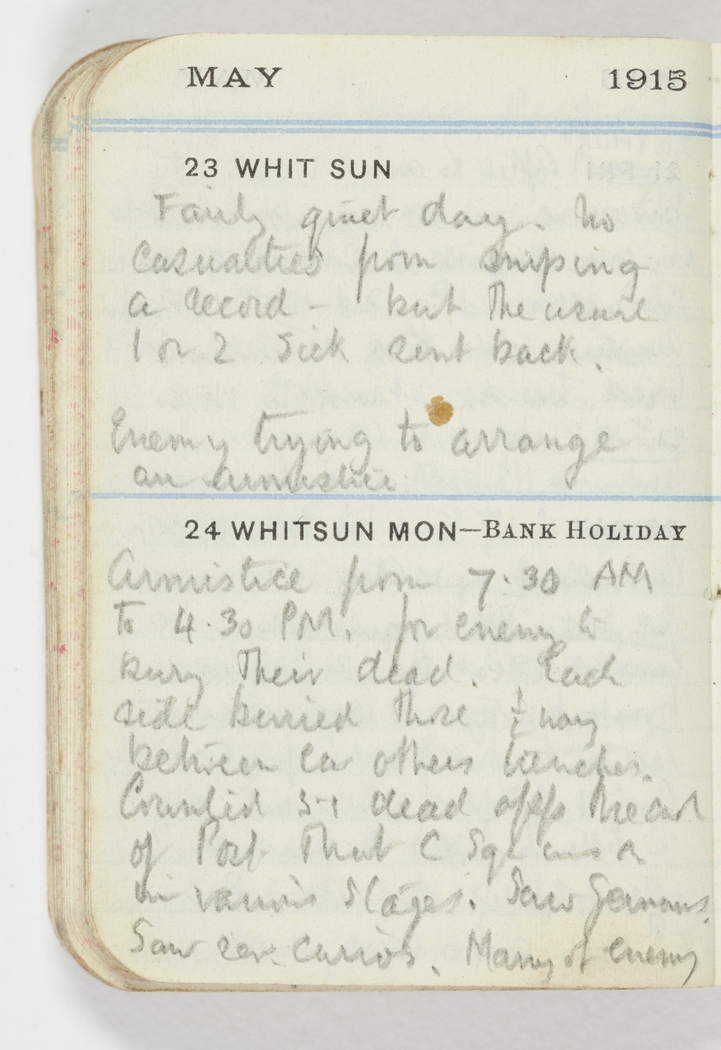 MAY 1915
23 WHIT SUN
Fairly quiet day. No
casualties from sniping
a record - but the usual
1 or 2 sick sent back.
Enemy trying to arrange
an armistice
24 WHITSUN MON—BANK HOLIDAY
Armistice from 7.30 AM
to 4.30 PM. for enemy to
bury their dead. Each
side buried those ½ way
between ea others trenches.
Counted 51 dead opp
of Post that C Sqn
in various stages. Saw Germans.
Saw sev. curios. Many of enemy